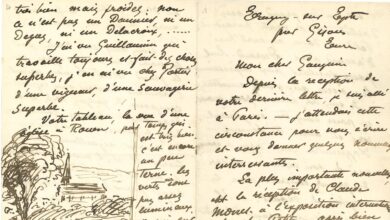 très bien mais froides: non
ce n'est pas un Daumier, ni un
Degas, ni un Delacroix, .....
J'ai vu Guillaumin qui
travaille toujours et fait des choses
superbes, j'en ai vu chez Portier
d'une vigueur, d'une Sauvagerie
superbe.
Votre Tableau, la vue d'une
église à Rouen
par temps gris
est très bien
c'est encore
un peu
terne. les
verts sont
pas assez
lumineux
Eragny-sur Epte
par Gisors
Eure
Mon cher Gauguin
Depuis la réception de
votre dernière lettre je suis allé
à Paris. — j'attendais cette
circonstance pour vous écrire
et vous donner quelques nouvelles
intéressantes.
La plus importante nouvelle
est la réception de Claude
Monet à l'exposition internationale
Petit